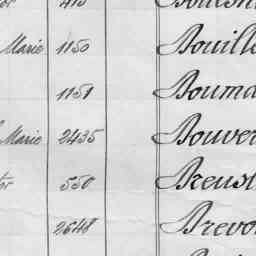 Marie 1150 Bouille
1151 Bouma
Marie 2435 Bouver
550 Breust
2648 Brevo